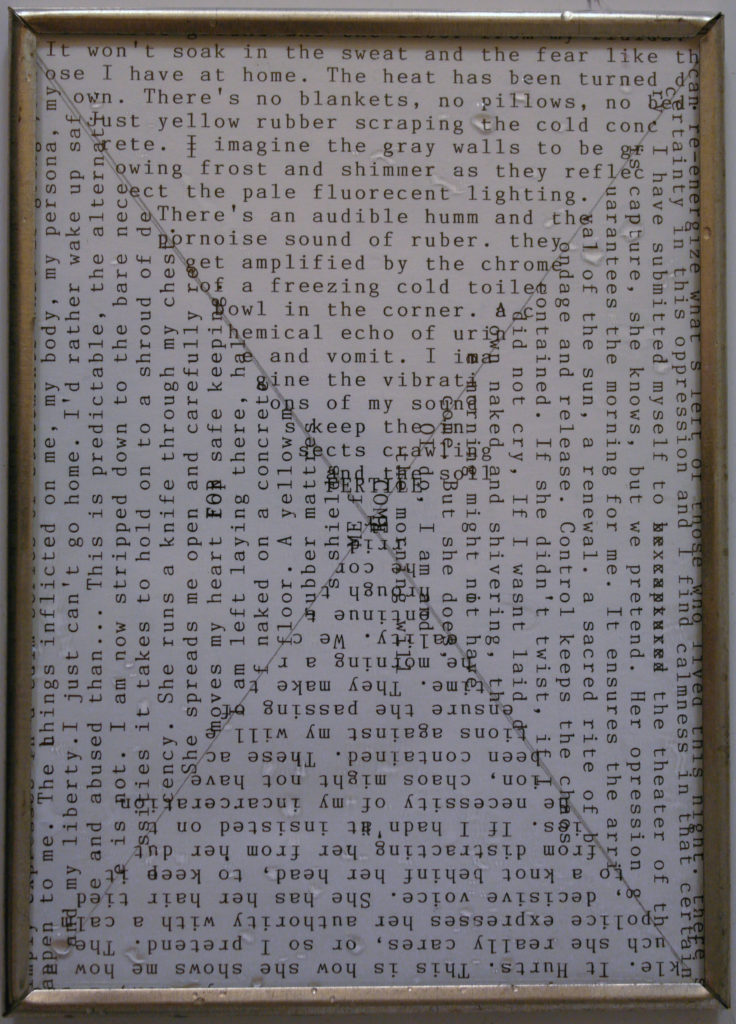 It won't soak in the sweat and the fear like th
ose I have at home. The heat has been turned d
own. There's no blankets, no pillows, no bed
Just yellow rubber scraping the cold conc
rete. I imagine the gray walls to be gl
owing frost and shimmer as they reflec
ect the pale fluorecent lighting.
There's an audible humm and the
pornoise sound of ruber. they
get amplified by the chrome
of a freezing cold toilet
bowl in the corner. A c
hemical echo of urin
e and vomit. I ima
gine the vibrati
ons of my sound
s keep the in
sects crawling
and the soil
FERTILE
can re-energize what's left of those who lived this night. there
certainty in this oppression and I find calmness in that certain
I have submitted myself to the theater of th
is capture, she knows, but we pretend. Her opression g
uarantees the morning for me. It ensures the arri
val of the sun, a renewal. a sacred rite of b
ondage and release. Control keeps the chaos
contained. If she didn't twist, if I
did not cry, If I wasnt laid d
own naked and shivering, th
e morning might not have
come. But she does,
I do, I am and
the morning will
COME
kle. It Hurts. This is how she shows me how
uch she really cares, or so I pretend. The
police expresses her authority with a cal
decisive voice. She has her hair tied
to a knot behinf her head, to keep it
from distracting her from her dut
ies. If I hadn't insisted on t
he necessity of my incarcerat
ion, chaos might not have
been contained. These ac
tions against my will
ensure the passing of
time. They make t
he morning a r
eality. We c
ontinue t
hrough t
he cor
rid
appen to me. The things inflicted on me, my body, my persona, my
and my liberty.I just can't go home. I'd rather wake up saf
e and abused than... This is predictable, the alternativ
e is not. I am now stripped down to the bare nece
ssities it takes to hold on to a shroud of de
cency. She runs a knife through my chest
She spreads me open and carefully re
moves my heart FOR safe keeping.
I am left laying there, hal
f naked on a concrete
floor. A yellow
rubber mattres
s shields
ME f